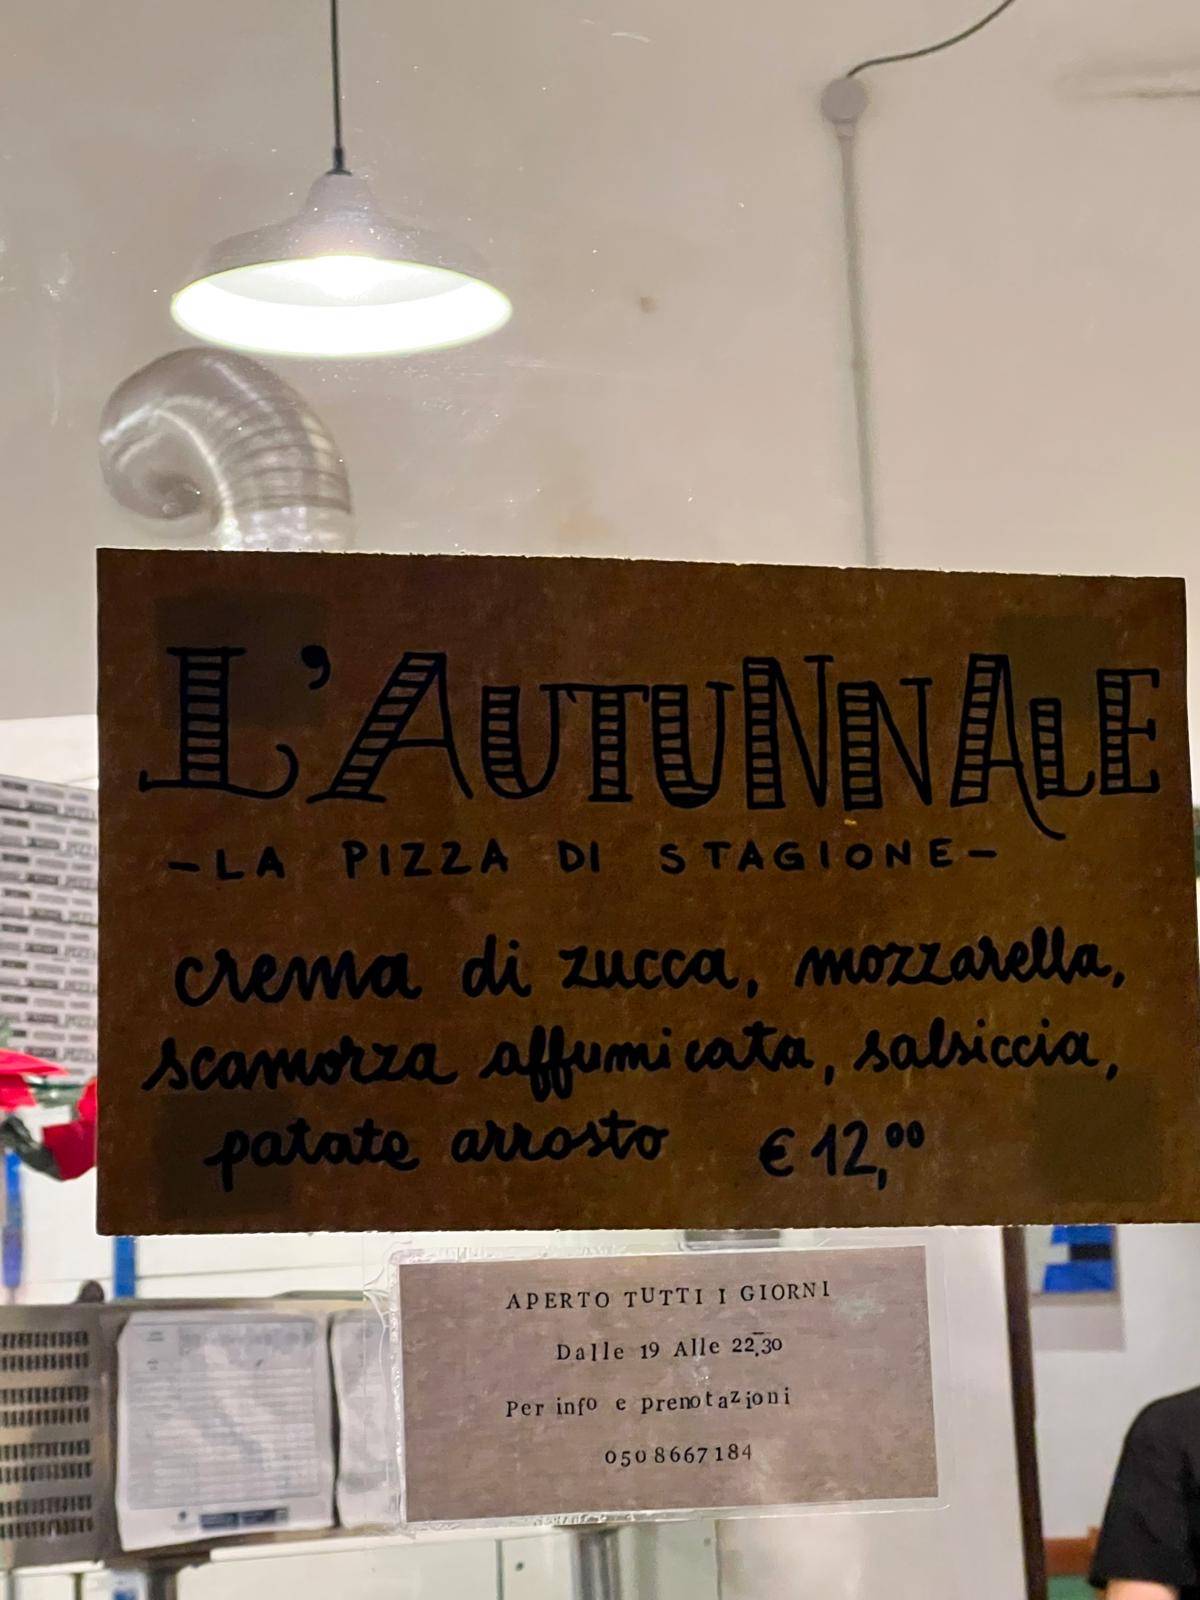 L'AUTUNNALE
-LA PIZZA DI STAGIONE-
crema di zucca, mozzarella,
scamorza affumicata, salsiccia,
patate arrosto €12,00
APERTO TUTTI I GIORNI
Dalle 19 Alle 22,30
Per info e prenotazioni
050 8667184